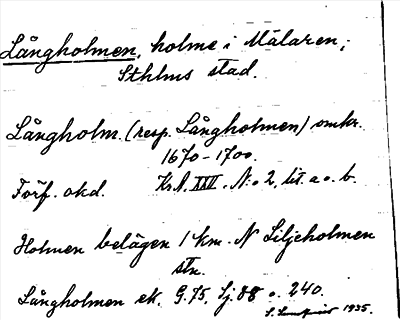 Långholmen, holme i Mälaren;
Sthlms stad.
Långholm. (resp. Långholmen) omkr.
1670-1700.
Förf. okd. Kr.A. XXV. N:o 2, lit. a o. b.
Holmen belägen 1 km. N Liljeholmen
stn.
Långholmen ek. G. 75, Sj. 88 o. 240.
1935.